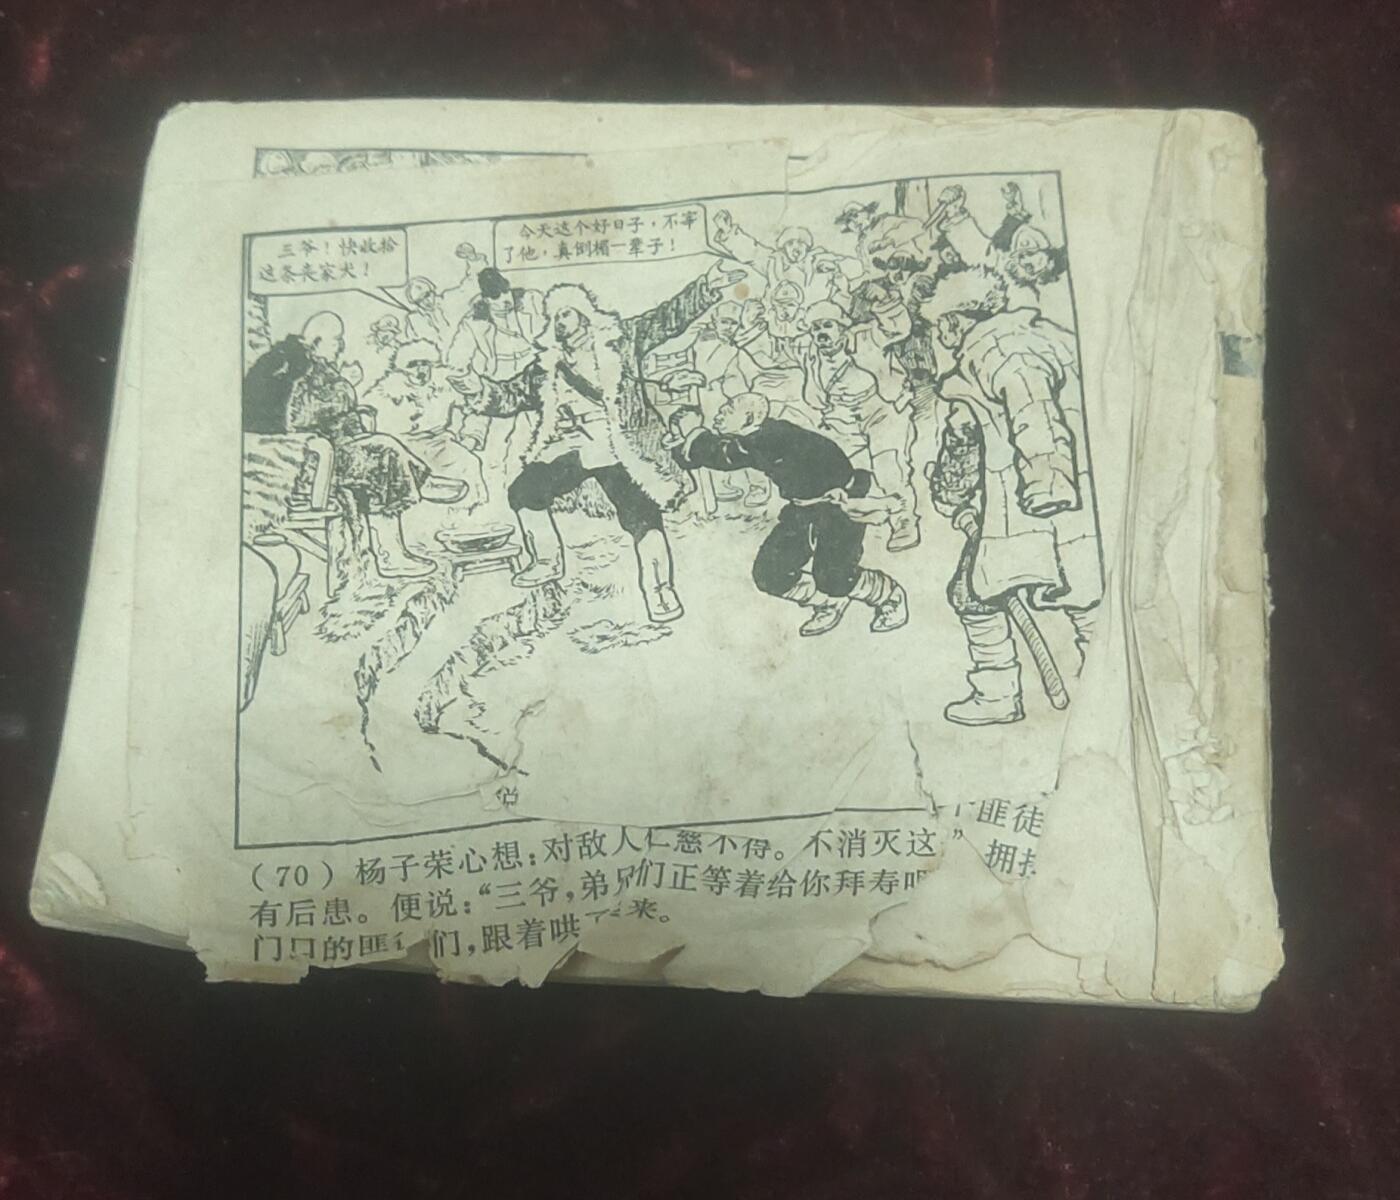 三爷！快收拾
这条丧家犬！
今天这个好日子，不宰
了他，真倒楣一辈子！
(70) 杨子荣心想：对敌人仁慈不得。不消灭这 个匪徒
有后患。便说：“三爷，弟兄们正等着给你拜寿呢 ” 拥挤
门口的匪徒们，跟着哄 来。